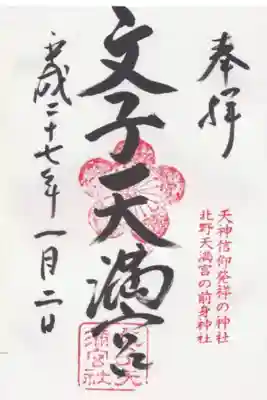 奉拝
天神信仰発祥の神社
北野天満宮の前身神社
文子天満宮
平成二十七年一月二日